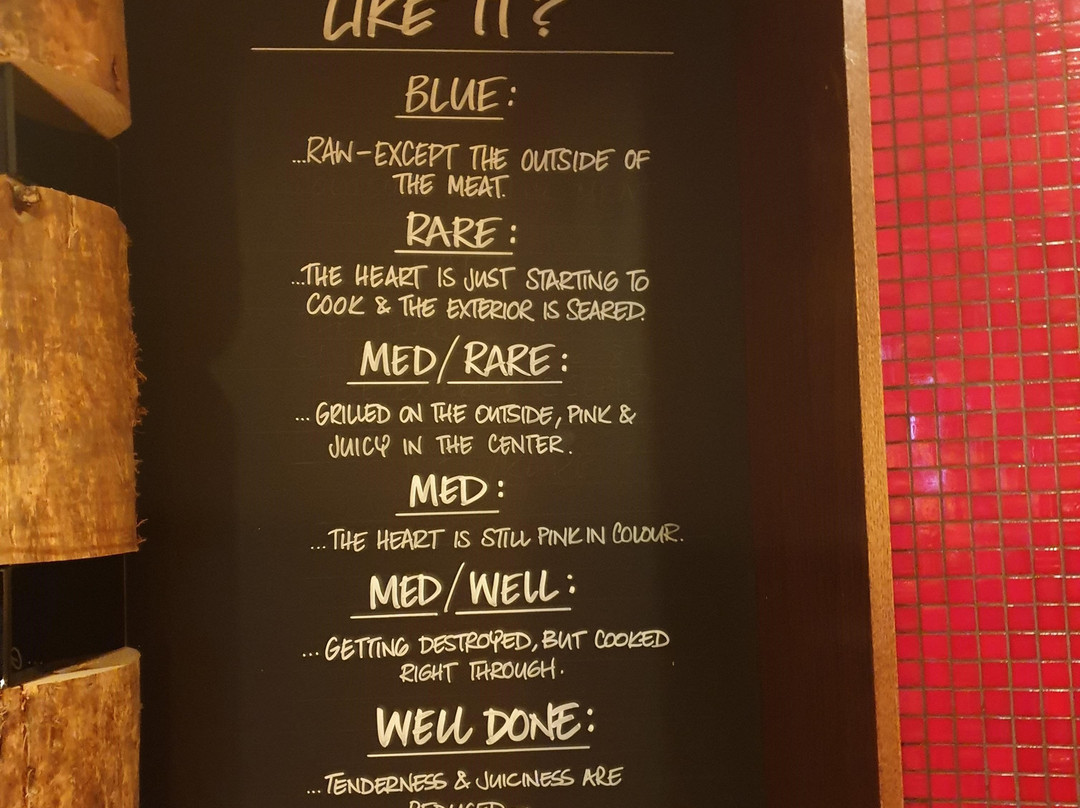 LIKE IT?
BLUE:
...RAW-EXCEPT THE OUTSIDE OF
THE MEAT.
RARE:
...THE HEART IS JUST STARTING TO
COOK & THE EXTERIOR IS SEARED.
MED/RARE:
...GRILLED ON THE OUTSIDE, PINK &
JUICY IN THE CENTER.
MED:
...THE HEART IS STILL PINK IN COLOUR.
MED/WELL:
...GETTING DESTROYED, BUT COOKED
RIGHT THROUGH.
WELL DONE:
...TENDERNESS & JUICINESS ARE
REDUCED